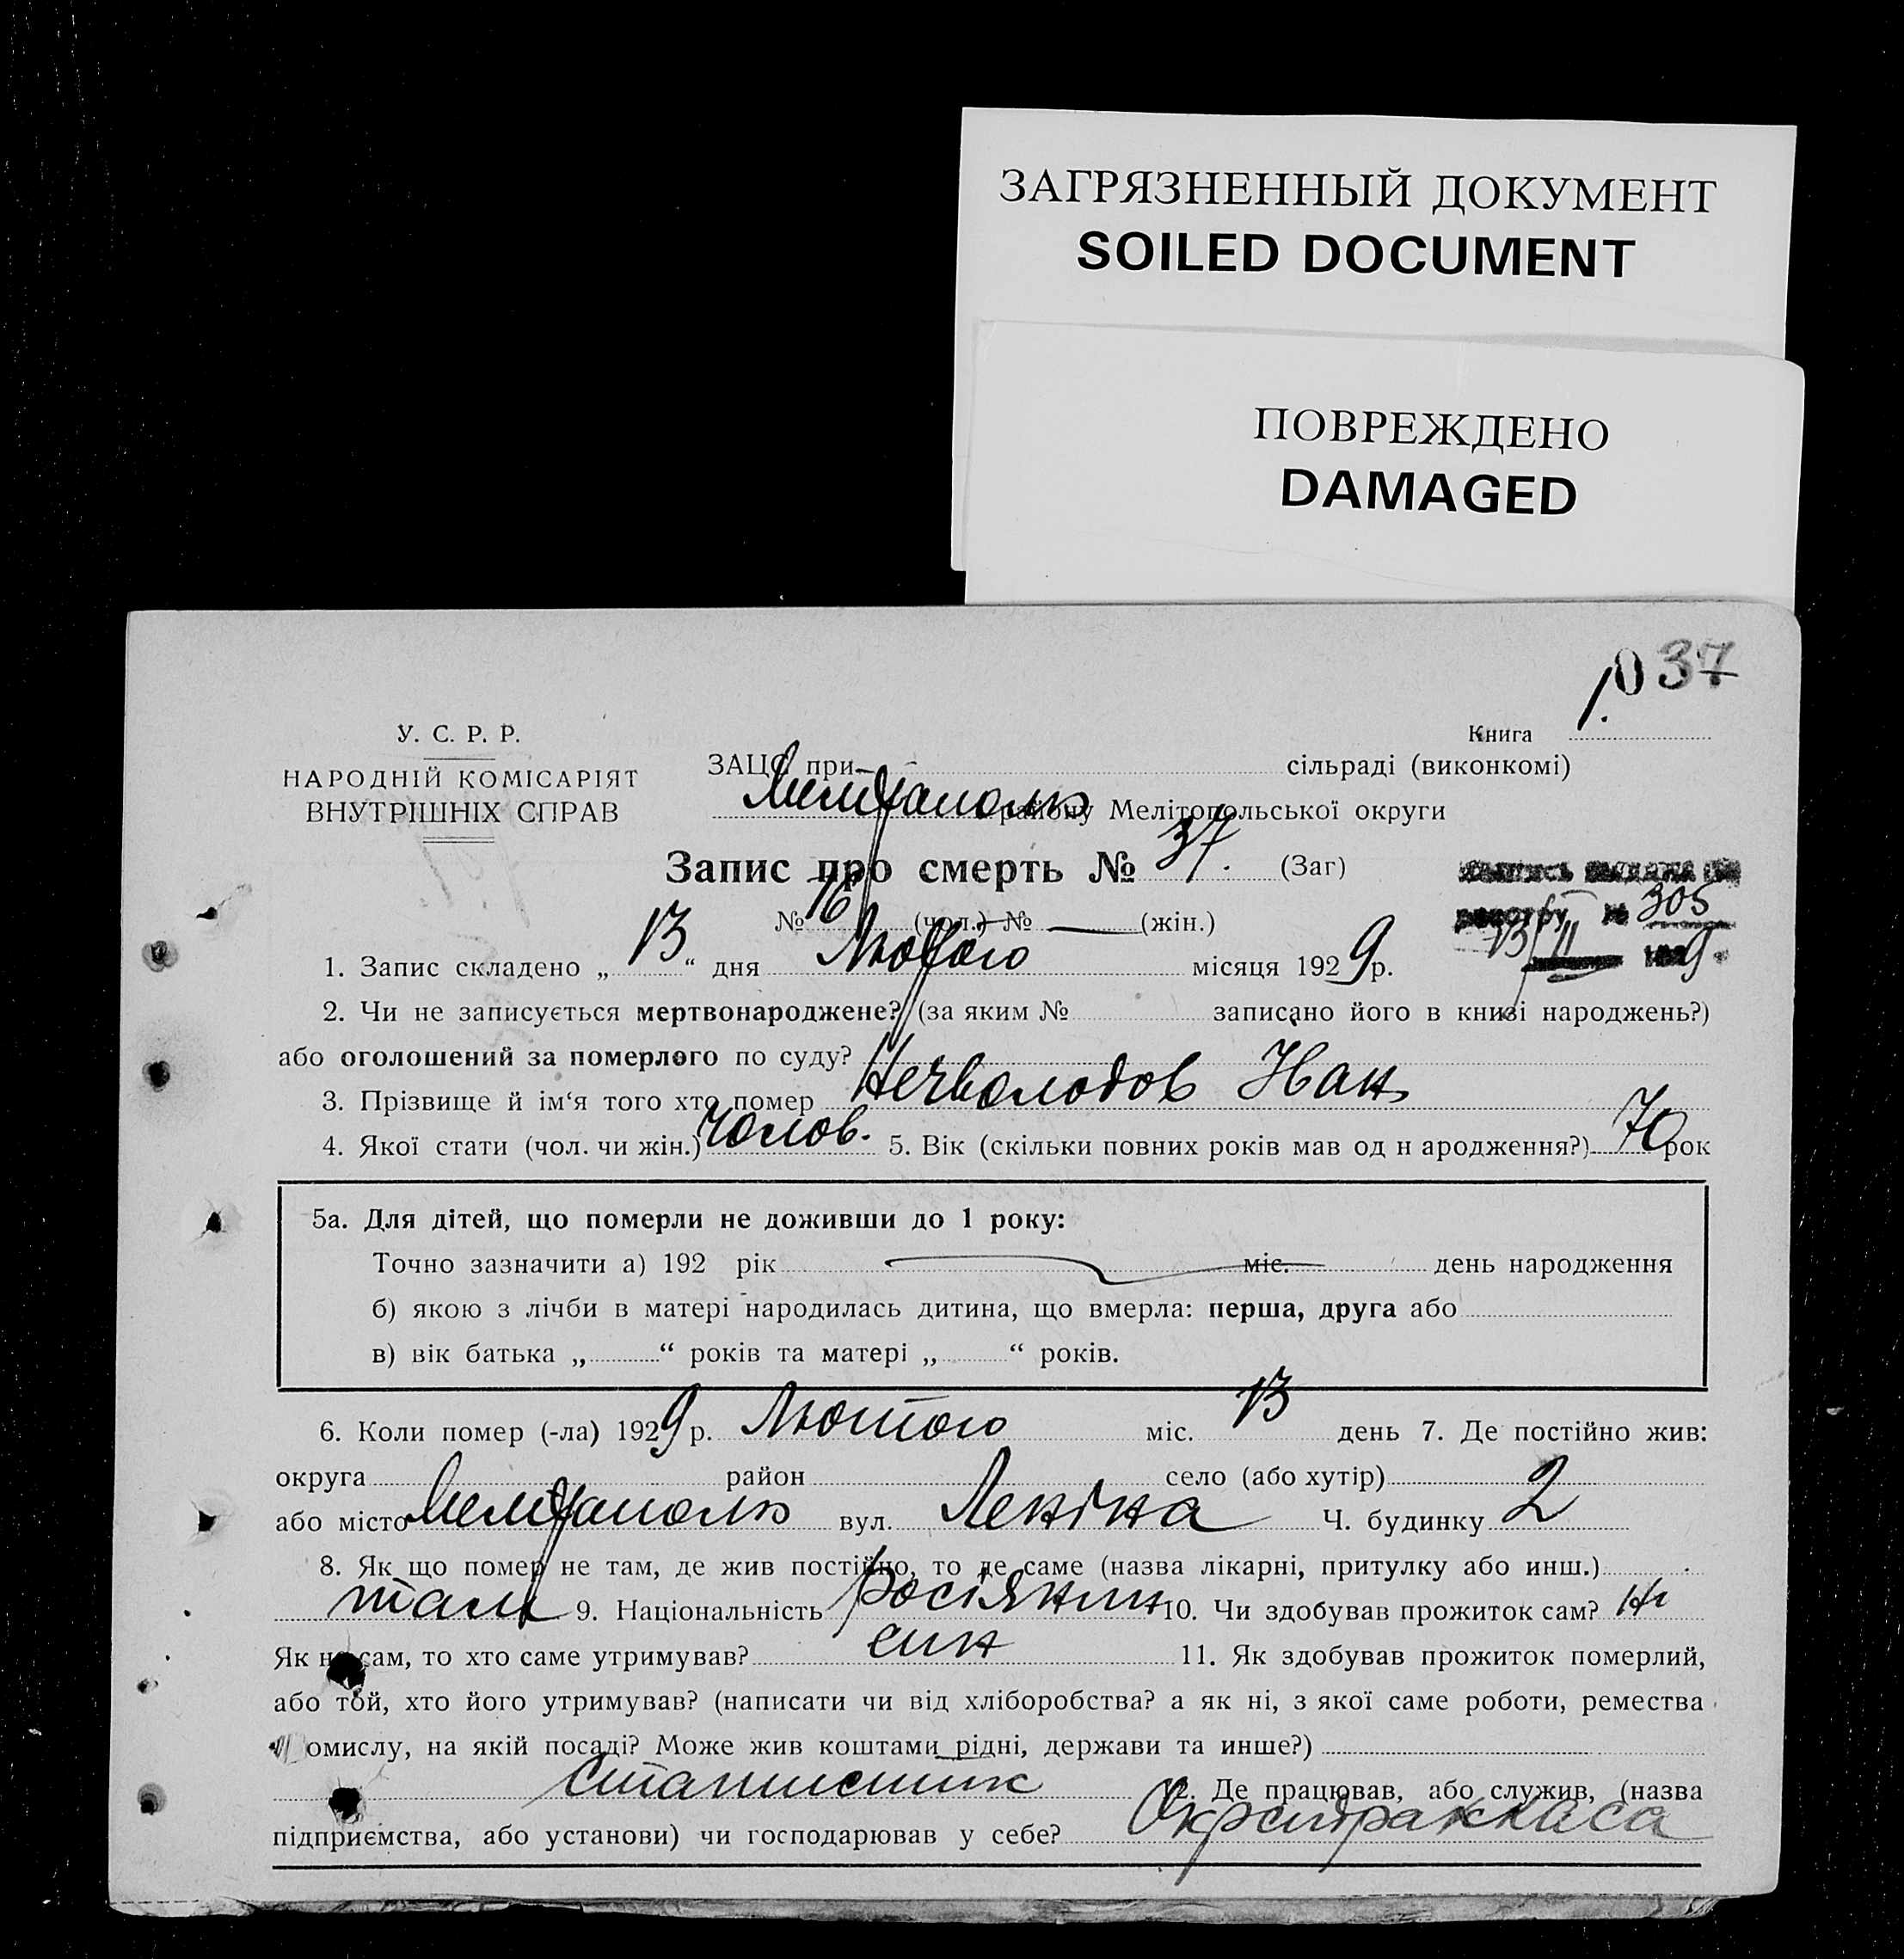 ЗАГРЯЗНЕННЫЙ ДОКУМЕНТ
SOILED DOCUMENT
ПОВРЕЖДЕНО
DAMAGED
37
У. С. Р. Р.
НАРОДНІЙ КОМІСАРІЯТ
ВНУТРІШНІХ СПРАВ
Книга 1.
ЗАЦС при сільраді (виконкомі)
Мелітополь району Мелітопольської округи
Запис про смерть № 37. (Заг)
№ 16 (чол.) № — (жін.)
305
13/II 1929.
1. Запис складено „13“ дня Лютого місяця 1929 р.
2. Чи не записується мертвонароджене? (за яким № записано його в книзі народжень?)
або оголошений за померлого по суду?
3. Прізвище й ім‘я того хто помер Нечволодов Іван
4. Якої стати (чол. чи жін.) Чолов. 5. Вік (скільки повних років мав од н ародження?) 70 рок
5а. Для дітей, що померли не доживши до 1 року:
Точно зазначити а) 192 рік міс. день народження
б) якою з лічби в матері народилась дитина, що вмерла: перша, друга або
в) вік батька „ “ років та матері „ “ років.
6. Коли помер (-ла) 1929 р. Лютого міс. 13 день 7. Де постійно жив:
округа район село (або хутір)
або місто Мелітополь вул. Леніна Ч. будинку 2
8. Як що помер не там, де жив постійно, то де саме (назва лікарні, притулку або инш.)
там 9. Національність росіянин 10. Чи здобував прожиток сам? ні
Як не сам, то хто саме утримував? син 11. Як здобував прожиток померлий,
або той, хто його утримував? (написати чи від хліборобства? а як ні, з якої саме роботи, ремества
омислу, на якій посаді? Може жив коштами рідні, держави та инше?)
Статистик 12. Де працював, або служив, (назва
підприємства, або установи) чи господарював у себе? Окрстрахкаса